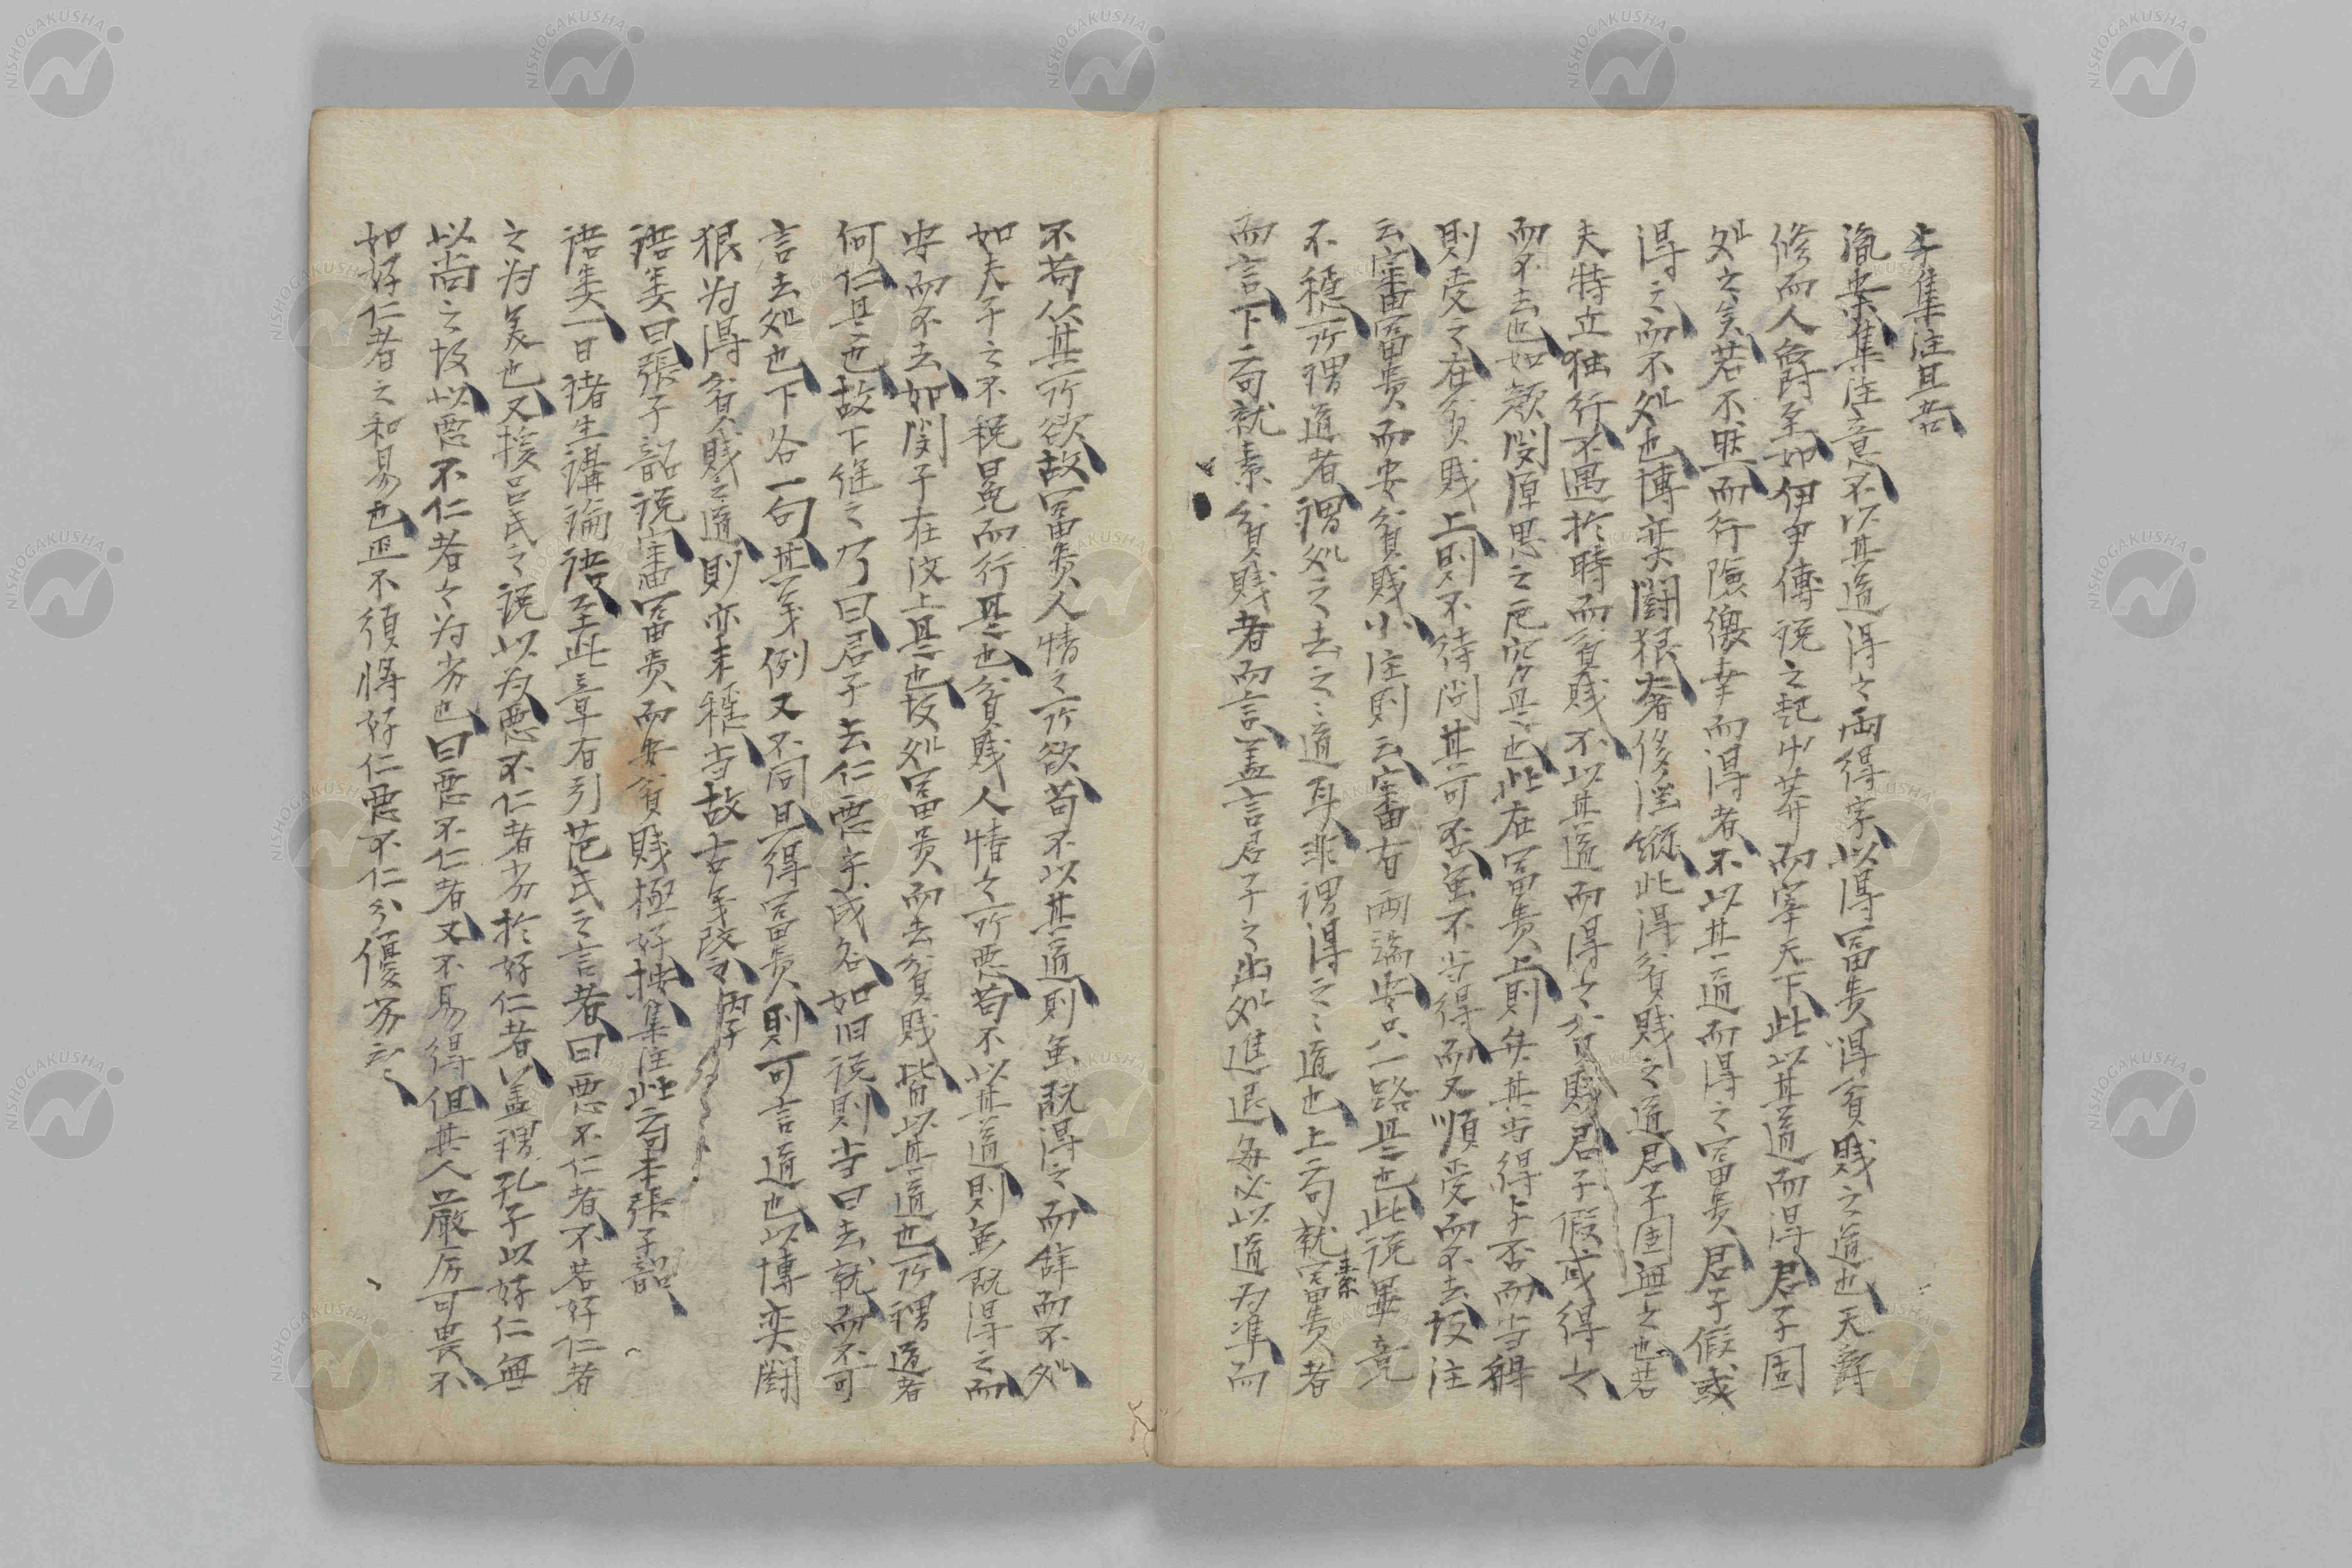 与集注且舌
胤案集注意不以其道得之両得字以得冨貴得貧賎之道也天爵
修而人爵至如伊尹傅説之起中莽而宰天下此以其道而得君子固
処之矣若不然而行険徼幸而得者不以其道而得之冨貴君子假或
得之而不処也博奕闘狠奢侈淫縦此得貧賎之道君子固無之也若
夫特立独行不遇於時而貧賎不以其道而得之貧賎君子假或得之
而不去也如顔閔原思之厄窮是也此在冨貴上則弁其当得与否而当得
則受之在貧賎上則不待問其可否虽不当得而又順受而不去故注
云審冨貴而安貧賎小注則云審有両端安只一路是也此説畢竟
不穏所謂道者謂処之去之之道耳非謂得之之道也上二句就素冨貴者
而言下二句就素貧賎者而言盖言君子之出処進退毎必以道為準而
不苟从其所欲故冨貴人人情之所欲苟不以其道則虽既得之而辞而不処
如夫子之不税冕而行是也貧賎人情之所悪苟不以其道則虽既得之而
安而不去如閔子在汶上是也故処冨貴而去貧賎皆以其道也所謂道者
何仁是也故下継之乃曰君子去仁悪乎成名如旧説則当曰去就而不可
言去処也下各一句其義例又不同且得冨貴則可言道也以博奕闘
狠为得貧賎之道則亦未穏当故古義改之丙子
語类曰張子韶説審冨貴而安貧賎極好按集注此二句本張子韶
語类一日諸生講論語至此章有引范氏之言者曰悪不仁者不若好仁者
之为美也又援呂氏之説以为悪不仁者劣於好仁者盖謂孔子以好仁無
以尚之故以悪不仁者之为劣也曰悪不仁者又不易得但其人厳厉可畏不
如好仁者之和易也正不須将好仁悪不仁分優劣云云